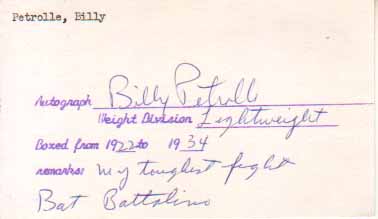 Petrolle, Billy
Autograph Billy Petrolle
Weight Division Lightweight
Boxed from 1922 to 1934
remarks: My toughest fight
Bat Battalino